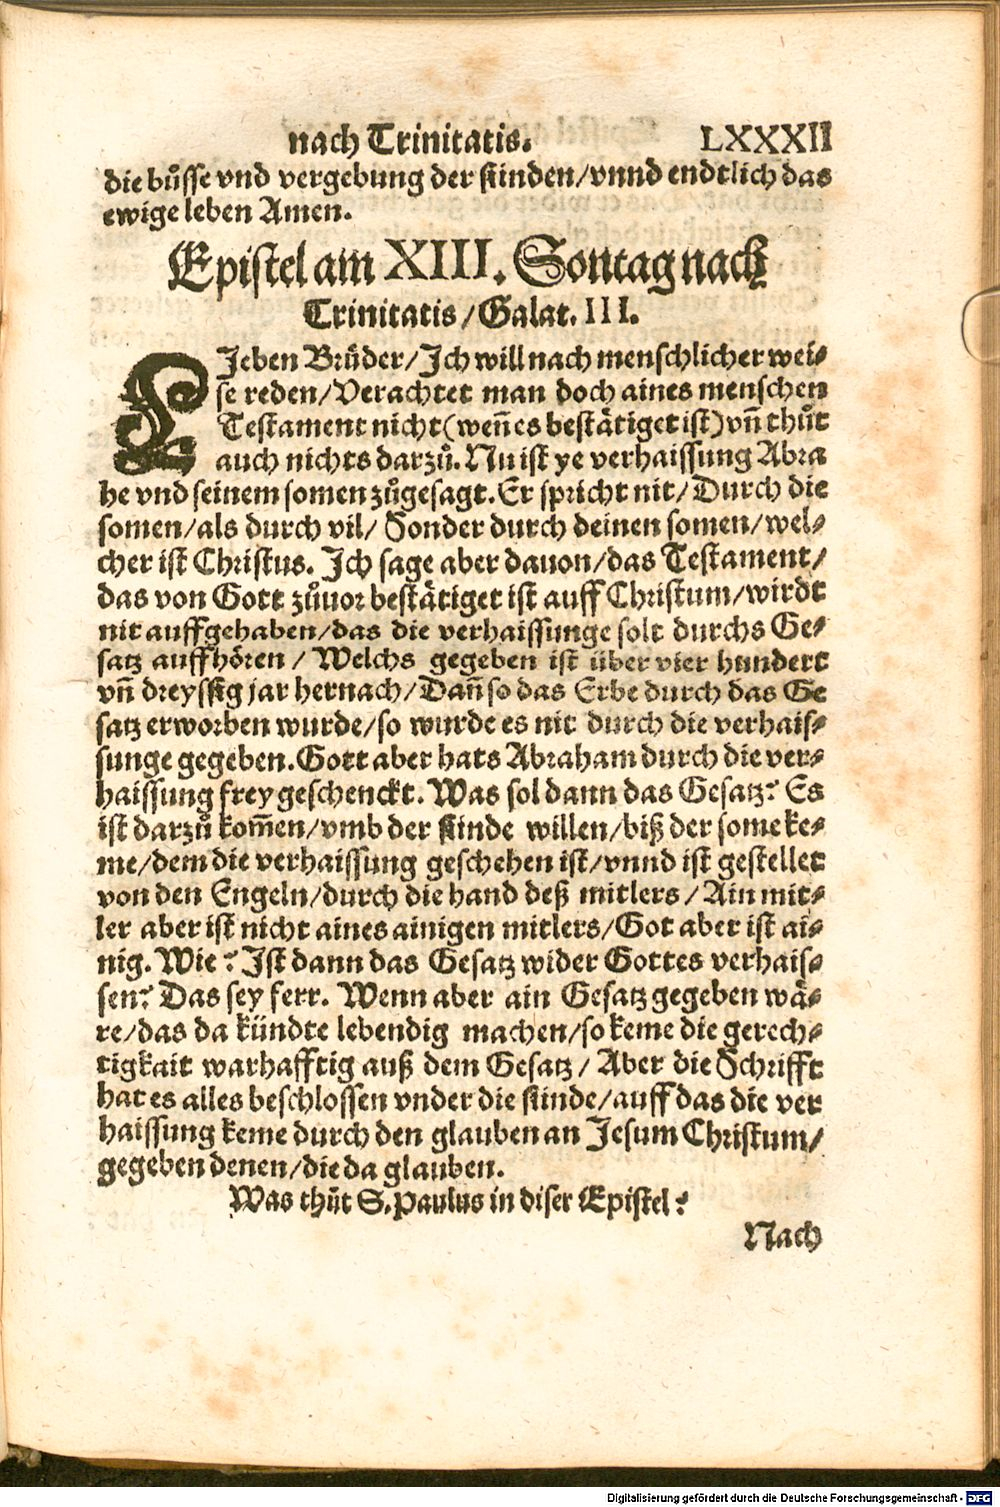 nach Trinitatis. LXXXII
die bůsse vnd vergebung der sünden/vnnd endtlich das
ewige leben Amen.
Epistel am XIII. Sontag nach
Trinitatis/Galat. III.
LJeben Brüder/Jch will nach menschlicher wei⸗
se reden/Verachtet man doch aines menschen
Testament nicht(weñ es bestätiget ist)vñ thůt
auch nichts darzů. Nu ist ye verhaissung Abra
he vnd seinem somen zůgesagt. Er spricht nit/Durch die
somen/als durch vil/Sonder durch deinen somen/wel⸗
cher ist Christus. Jch sage aber dauon/das Testament/
das von Gott zůuor bestätiget ist auff Christum/wirdt
nit auffgehaben/das die verhaissunge solt durchs Ge⸗
satz auffhören/Welchs gegeben ist über vier hundert
vñ dreyssig jar hernach/Dañ so das Erbe durch das Ge
satz erworben wurde/so wurde es nit durch die verhais⸗
sunge gegeben. Gott aber hats Abraham durch die ver⸗
haissung frey geschenckt. Was sol dann das Gesatz? Es
ist darzů kom̄en/vmb der sünde willen/biß der some ke⸗
me/dem die verhaissung geschehen ist/vnnd ist gestellet
von den Engeln/durch die hand deß mitlers/Ain mit⸗
ler aber ist nicht aines ainigen mitlers/Got aber ist ai⸗
nig. Wie? Jst dann das Gesatz wider Gottes verhais⸗
sen? Das sey ferr. Wenn aber ain Gesatz gegeben wä⸗
re/das da kündte lebendig machen/so keme die gerech⸗
tigkait warhafftig auß dem Gesatz/Aber die Schrifft
hat es alles beschlossen vnder die sünde/auff das die ver
haissung keme durch den glauben an Jesum Christum/
gegeben denen/die da glauben.
Was thůt S. Paulus in diser Epistel?
Nach
Digitalisierung gefördert durch die Deutsche Forschungsgemeinschaft - DFG